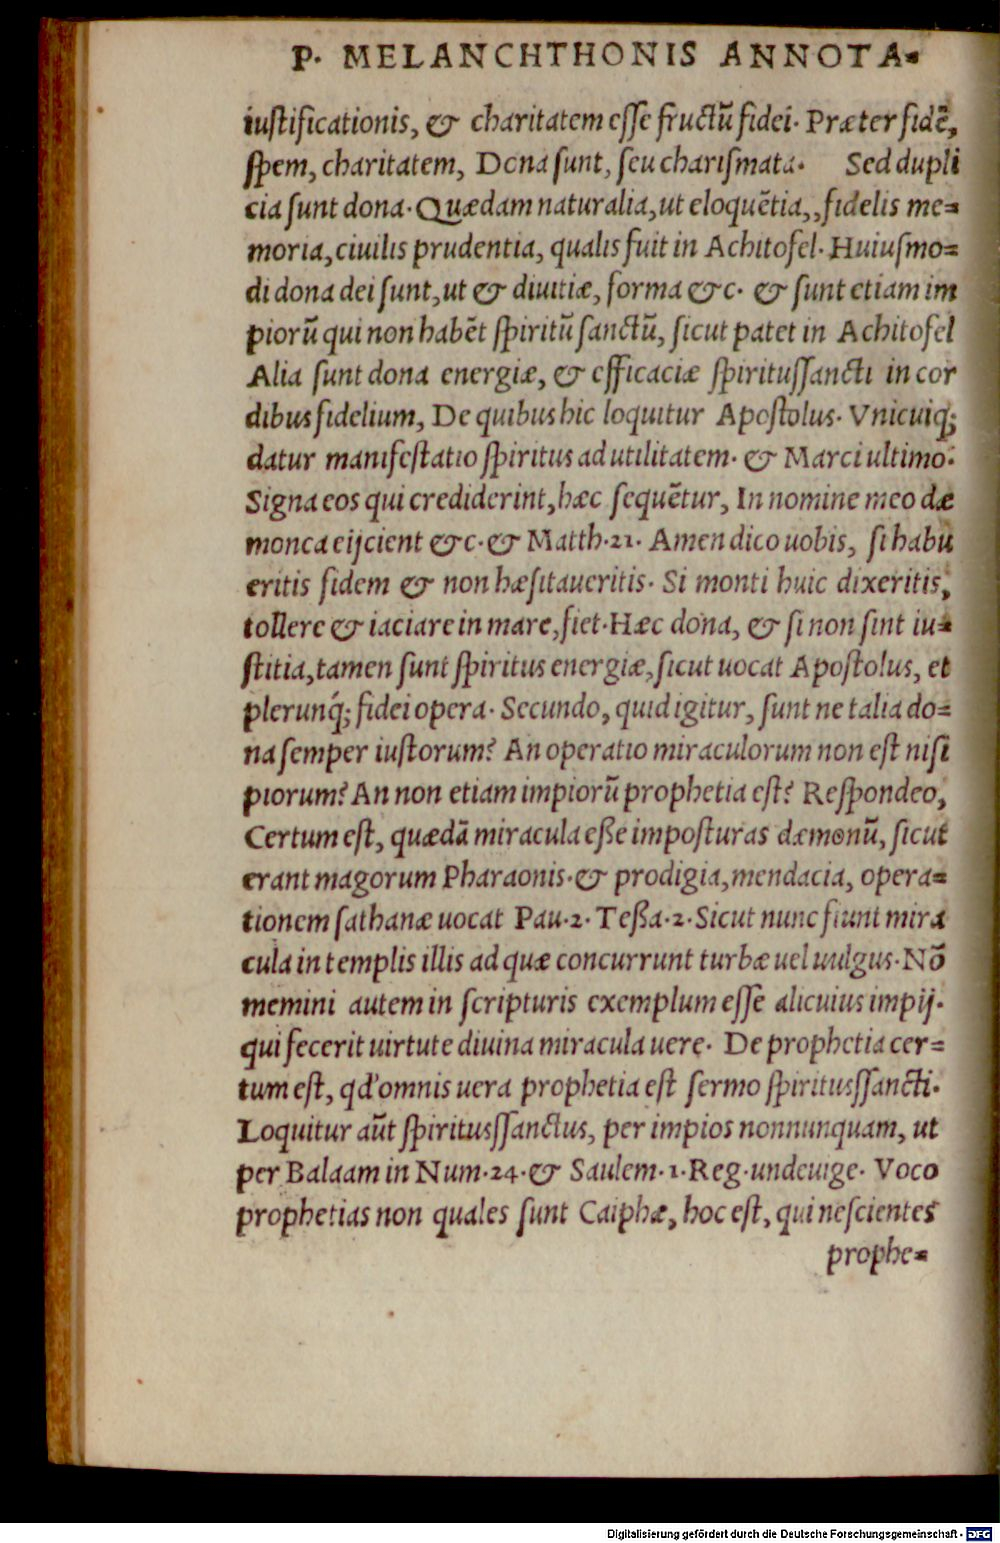 P. MELANCHTHONIS ANNOTA⸗
iuſtificationis, & charitatem eſſe fructũ fidei. Præter fidẽ,
ſpem, charitatem, Dona ſunt, ſeu chariſmata. Sed dupli
cia ſunt dona. Quædam naturalia, ut eloquẽtia,, fidelis me⸗
moria, ciuilis prudentia, qualis fuit in Achitofel. Huiuſmo⸗
di dona dei ſunt, ut & diuitiæ, forma &c. & ſunt etiam im
piorũ qui non habẽt ſpiritũ ſanctũ, ſicut patet in Achitofel
Alia ſunt dona energiæ, & efficaciæ ſpirituſſancti in cor
dibus fidelium, De quibus hic loquitur Apoſtolus. Vnicuiq;
datur manifeſtatio ſpiritus ad utilitatem. & Marci ultimo.
Signa eos qui crediderint, hæc ſequẽtur, In nomine meo dæ
monea eijcient &c. & Matth. 21. Amen dico uobis, ſi habu
eritis fidem & non hæſitaueritis. Si monti huic dixeritis,
tollere & iaciare in mare, fiet. Hæc dona, & ſi non ſint iu⸗
ſtitia, tamen ſunt ſpiritus energiæ, ſicut uocat Apoſtolus, et
plerunq́; fidei opera. Secundo, quid igitur, ſunt ne talia do⸗
na ſemper iuſtorum? An operatio miraculorum non eſt niſi
piorum? An non etiam impiorũ prophetia eſt? Reſpondeo,
Certum eſt, quædã miracula eße impoſturas dæmonũ, ſicut
erant magorum Pharaonis. & prodigia, mendacia, opera⸗
tionem ſathanæ uocat Pau. 2. Teßa. 2. Sicut nunc fiunt mira
cula in templis illis ad quæ concurrunt turbæ uel uulgus. Nõ
memini autem in ſcripturis exemplum eſſe alicuius impij.
qui fecerit uirtute diuina miracula uere. De prophetia cer⸗
tum eſt, qd' omnis uera prophetia eſt ſermo ſpiritusſſancti.
Loquitur aũt ſpiritusſſanctus, per impios nonnunquam, ut
per Balaam in Num. 24. & Saulem. 1. Reg. undeuige. Voco
prophetias non quales ſunt Caiphæ, hoc eſt, qui neſcientes
prophe⸗
Digitalisierung gefördert durch die Deutsche Forschungsgemeinschaft - DFG